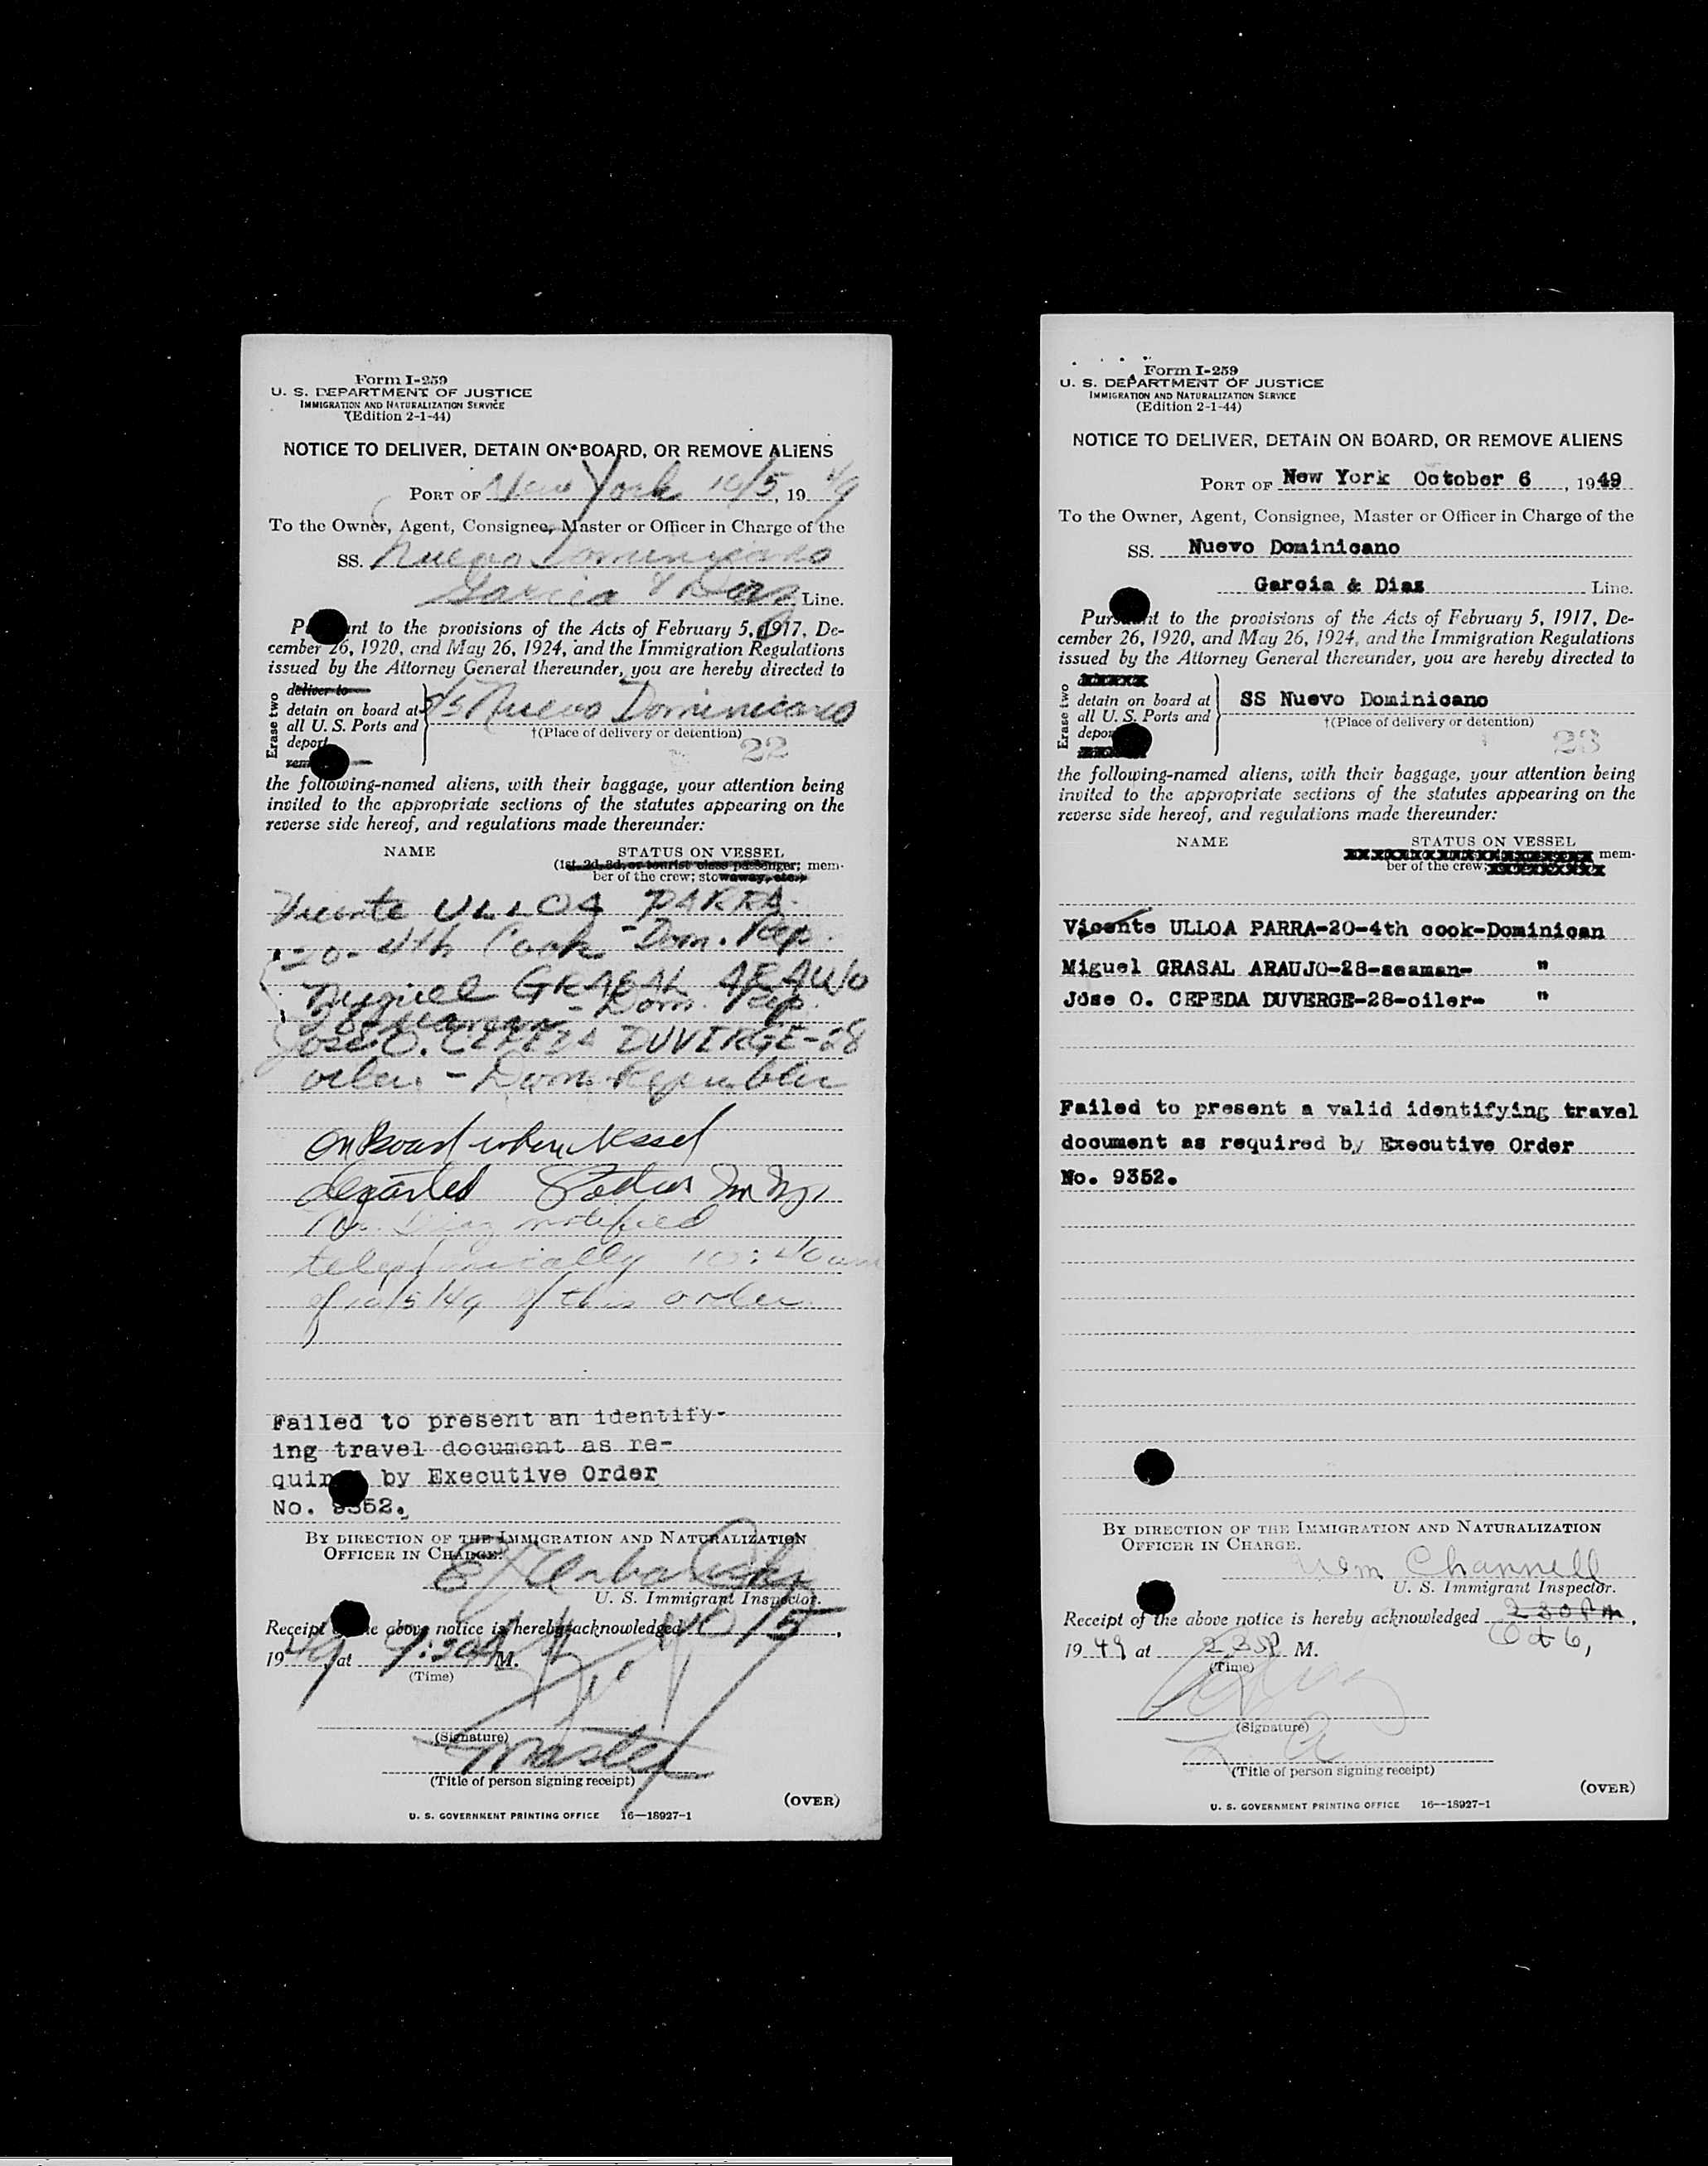 Form I-259
U. S. DEPARTMENT OF JUSTICE
IMMIGRATION AND NATURALIZATION SERVICE
(Edition 2-1-44)
NOTICE TO DELIVER, DETAIN ON BOARD, OR REMOVE ALIENS
PORT OF New York 10/5, 1949
To the Owner, Agent, Consignee, Master or Officer in Charge of the
SS. Nuevo Dominicano
Garcia & Diaz Line.
Pursuant to the provisions of the Acts of February 5, 1917, De-
cember 26, 1920, and May 26, 1924, and the Immigration Regulations
issued by the Attorney General thereunder, you are hereby directed to
Erase two
deliver to
detain on board at
all U. S. Ports and
deport
S/S Nuevo Dominicano
†(Place of delivery or detention)
22
the following-named aliens, with their baggage, your attention being
invited to the appropriate sections of the statutes appearing on the
reverse side hereof, and regulations made thereunder:
NAME STATUS ON VESSEL
(1st, 2d, 3d, or tourist class passenger; mem-
ber of the crew; stowaway, etc.)
Vicente ULLOA PARRA-
20-4th Cook - Dom. Rep.
Miguel GRASAL ARAUJO
28-seaman - Dom. Rep.
Jose O. CEPEDA DUVERGE-28
oiler - Dom. Republic
On Board when Vessel
departed
Mr. Diaz notified
telephonically 10:40am
of 10/5/49 of this order
Failed to present an identify-
ing travel document as re-
quired by Executive Order
No. 9352.
BY DIRECTION OF THE IMMIGRATION AND NATURALIZATION
OFFICER IN CHARGE.
U. S. Immigrant Inspector.
Receipt of the above notice is hereby acknowledged 10/5,
1949, at 9:30 A M.
(Time)
(Signature)
Master
(Title of person signing receipt)
(OVER)
U. S. GOVERNMENT PRINTING OFFICE 16—18927-1
Form I-259
U. S. DEPARTMENT OF JUSTICE
IMMIGRATION AND NATURALIZATION SERVICE
(Edition 2-1-44)
NOTICE TO DELIVER, DETAIN ON BOARD, OR REMOVE ALIENS
PORT OF New York October 6, 1949
To the Owner, Agent, Consignee, Master or Officer in Charge of the
SS. Nuevo Dominicano
Garcia & Diaz Line.
Pursuant to the provisions of the Acts of February 5, 1917, De-
cember 26, 1920, and May 26, 1924, and the Immigration Regulations
issued by the Attorney General thereunder, you are hereby directed to
Erase two
detain on board at
all U. S. Ports and
deport
SS Nuevo Dominicano
†(Place of delivery or detention)
23
the following-named aliens, with their baggage, your attention being
invited to the appropriate sections of the statutes appearing on the
reverse side hereof, and regulations made thereunder:
NAME STATUS ON VESSEL
mem-
ber of the crew;
Vicente ULLOA PARRA-20-4th cook-Dominican
Miguel GRASAL ARAUJO-28-seaman- "
Jose O. CEPEDA DUVERGE-28-oiler- "
Failed to present a valid identifying travel
document as required by Executive Order
No. 9352.
BY DIRECTION OF THE IMMIGRATION AND NATURALIZATION
OFFICER IN CHARGE.
Wm Channell
U. S. Immigrant Inspector.
Receipt of the above notice is hereby acknowledged 2 30 PM,
Oct 6,
1949 at 2 30 P. M.
(Time)
(Signature)
(Title of person signing receipt)
(OVER)
U. S. GOVERNMENT PRINTING OFFICE 16—18927-1